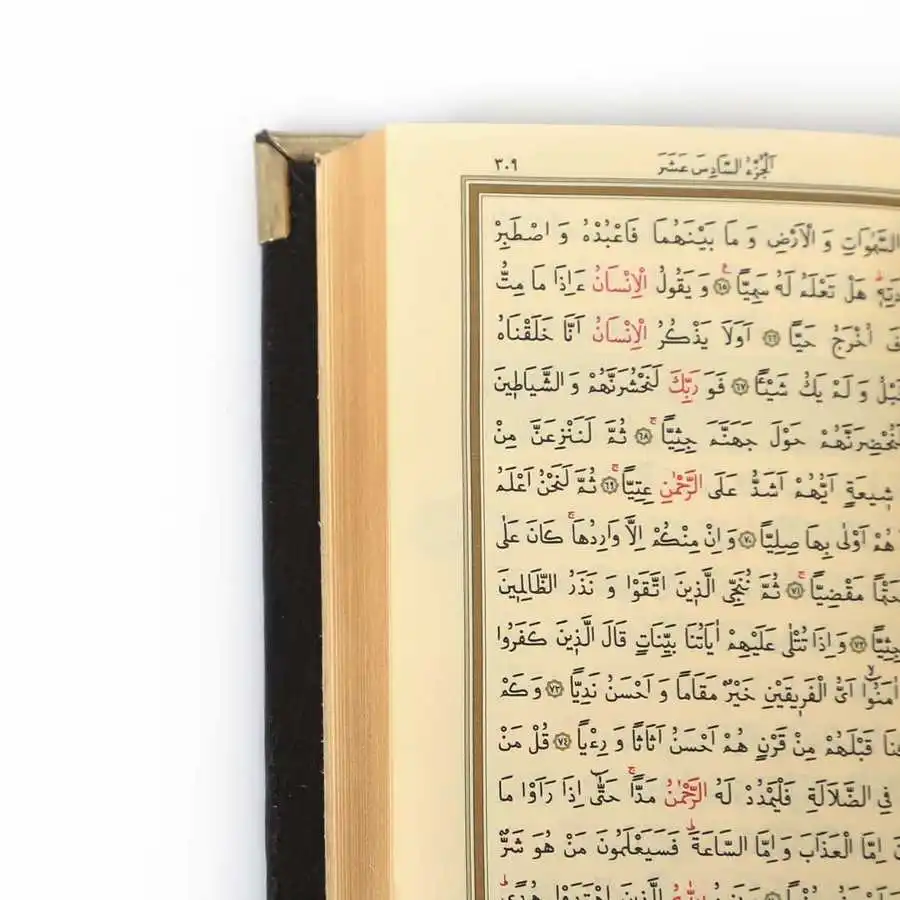 اَلْجُزْءُ السَّادِسَ عَشَرَ
٣٠٩
السَّمٰوَاتِ وَ الْاَرْضِ وَ مَا بَيْنَهُمَا فَاعْبُدْهُ وَ اصْطَبِرْ
هَلْ تَعْلَمُ لَهُ سَمِيًّا ۝٦٥ وَ يَقُولُ الْاِنْسَانُ ءَاِذَا مَا مِتُّ
اُخْرَجُ حَيًّا ۝٦٦ اَوَلَا يَذْكُرُ الْاِنْسَانُ اَنَّا خَلَقْنَاهُ
وَ لَمْ يَكُ شَيْئًا ۝٦٧ فَوَ رَبِّكَ لَنَحْشُرَنَّهُمْ وَ الشَّيَاطِينَ
حَوْلَ جَهَنَّمَ جِثِيًّا ۝٦٨ ثُمَّ لَنَنْزِعَنَّ مِنْ
شِيعَةٍ اَيُّهُمْ اَشَدُّ عَلَى الرَّحْمٰنِ عِتِيًّا ۝٦٩ ثُمَّ لَنَحْنُ اَعْلَمُ
هُمْ اَوْلٰى بِهَا صِلِيًّا ۝٧٠ وَ اِنْ مِنْكُمْ اِلَّا وَارِدُهَا كَانَ عَلٰى
حَتْمًا مَقْضِيًّا ۝٧١ ثُمَّ نُنَجِّى الَّذِينَ اتَّقَوْا وَ نَذَرُ الظَّالِمِينَ
جِثِيًّا ۝٧٢ وَ اِذَا تُتْلٰى عَلَيْهِمْ اٰيَاتُنَا بَيِّنَاتٍ قَالَ الَّذِينَ كَفَرُوا
اٰمَنُوا اَىُّ الْفَرِيقَيْنِ خَيْرٌ مَقَامًا وَ اَحْسَنُ نَدِيًّا ۝٧٣ وَ كَمْ
قَبْلَهُمْ مِنْ قَرْنٍ هُمْ اَحْسَنُ اَثَاثًا وَ رِءْيًا ۝٧٤ قُلْ مَنْ
فِى الضَّلَالَةِ فَلْيَمْدُدْ لَهُ الرَّحْمٰنُ مَدًّا حَتّٰى اِذَا رَاَوْا مَا
اِمَّا الْعَذَابَ وَ اِمَّا السَّاعَةَ فَسَيَعْلَمُونَ مَنْ هُوَ شَرٌّ